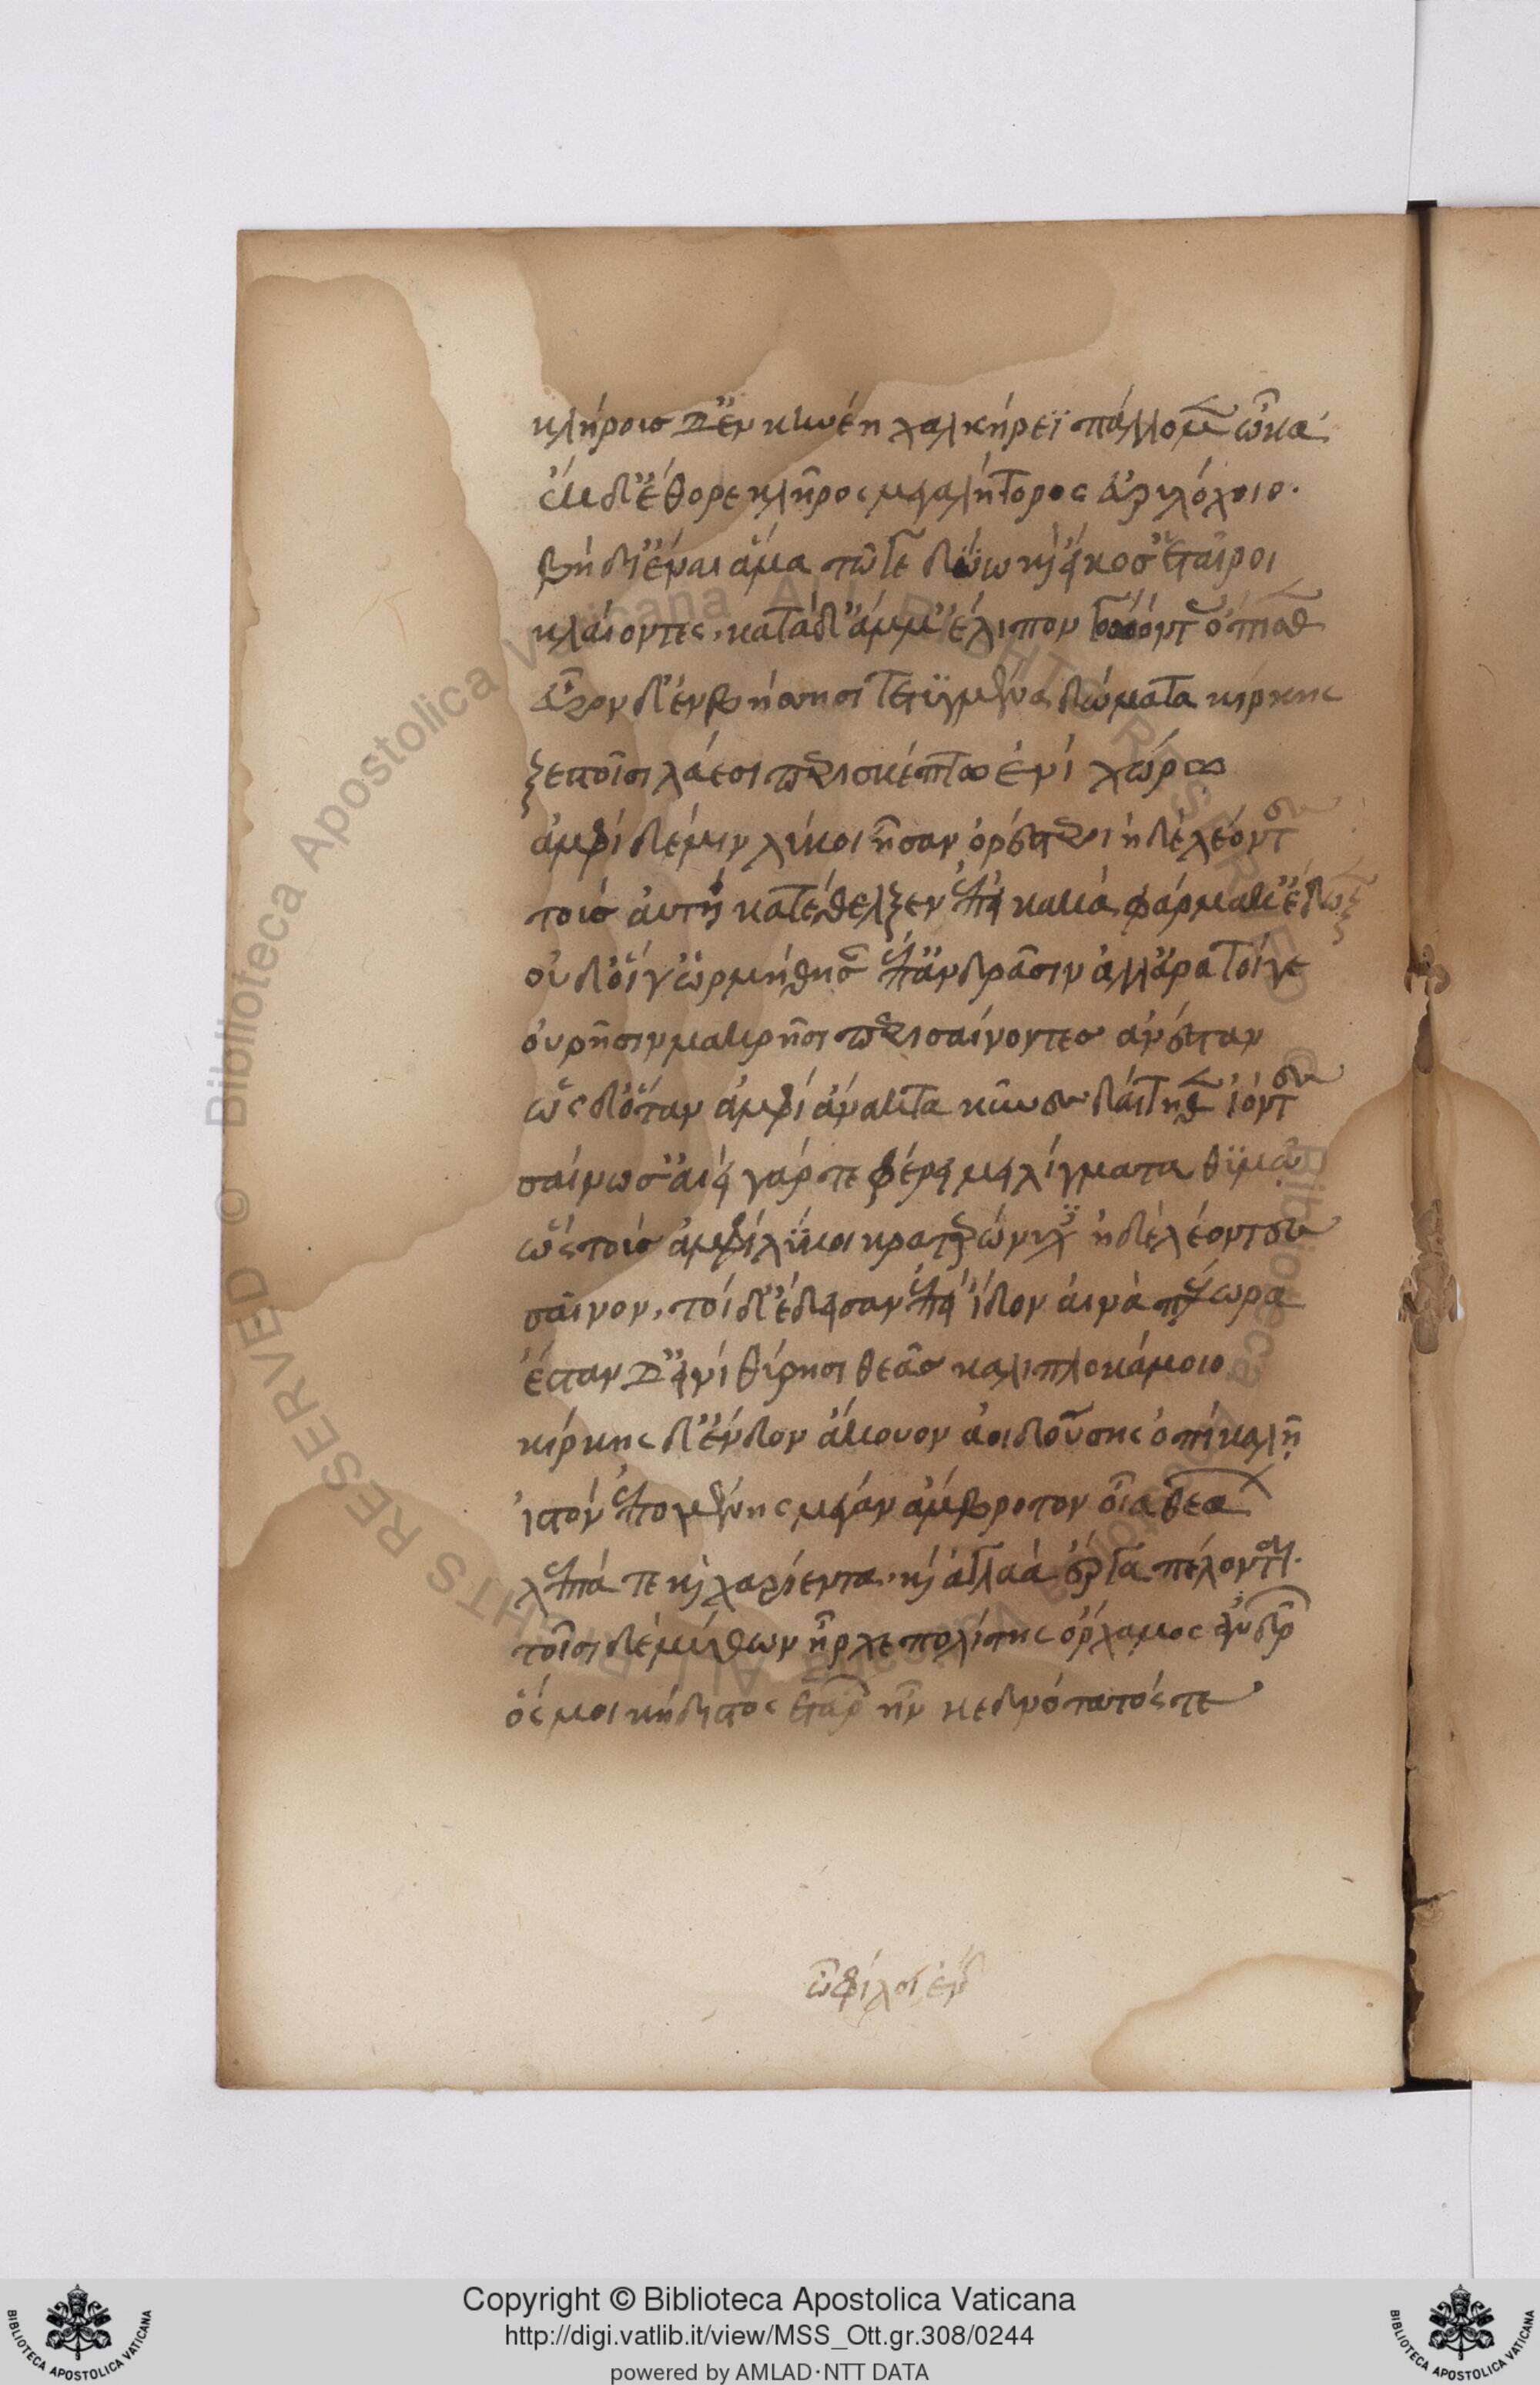 κλήρους δ' ἐν κυνέη χαλκήρεϊ πάλλομεν ὦκα.
ἐκ δ' ἔθορε κλῆρος μεγαλήτορος εὐρυλόχοιο.
βῆ δ' ἰέναι ἅμα τῶγε δύω κὶ εἴκοσ' ἑταῖροι
κλαίοντες, κατὰ δ' ἄμμ' ἔλιπον γοόοντας ὄπισθεν
εὗρον δ' ἐν βήσσησι τετυγμένα δώματα κίρκης
ξεστοῖσι λάεσι περισκέπτω ἐνὶ χώρω
ἀμφὶ δέ μιν λύκοι ἦσαν ὀρέστεροι ἠδὲ λέοντες
τοὺς αὐτὴ κατέθελξεν ἐπεὶ κακὰ φάρμακ' ἔδωκεν
οὐδ' οἵγ' ὡρμήθησαν ἐπ' ἀνδράσιν ἀλλ' ἄρα τοίγε
οὐρῆσιν μακρῆσι περισαίνοντες ἀνέσταν
ὡς δ' ὅταν ἀμφὶ ἄνακτα κύνες δαίτηθεν ἰόντα
σαίνωσ' αἰεὶ γάρ τε φέρει μειλίγματα θυμοῦ
ὣς τοὺς ἀμφὶ λύκοι κρατερώνυχες ἠδὲ λέοντες
σαῖνον, τοὶ δ' ἔδεισαν ἐπεὶ ἴδον αἰνὰ πέλωρα
ἔσταν δ' εἰνὶ θύρησι θεᾶς καλιπλοκάμοιο
κίρκης δ' ἔνδον ἄκουον ἀοιδούσης ὀπὶ καλῆ
ἱστὸν ἐποιχομένης μέγαν ἄμβροτον οἷα θεάων
λεπτά τε κὶ χαρίεντα κὶ ἀγλαὰ ἔργα πέλονται.
τοῖσι δὲ μύθων ἦρχε πολίτης ὄρχαμος ἀνδρῶν
ὅς μοι κήδιστος ἑτάρων ἦν κεδνότατός τε
ὦ φίλοι ἔνδ
Copyright © Biblioteca Apostolica Vaticana
http://digi.vatlib.it/view/MSS_Ott.gr.308/0244
powered by AMLAD·NTT DATA